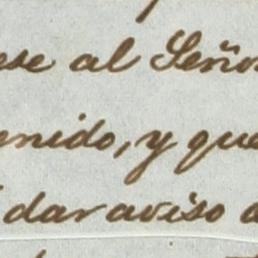 ese al Señor
enido, y que
dar aviso a